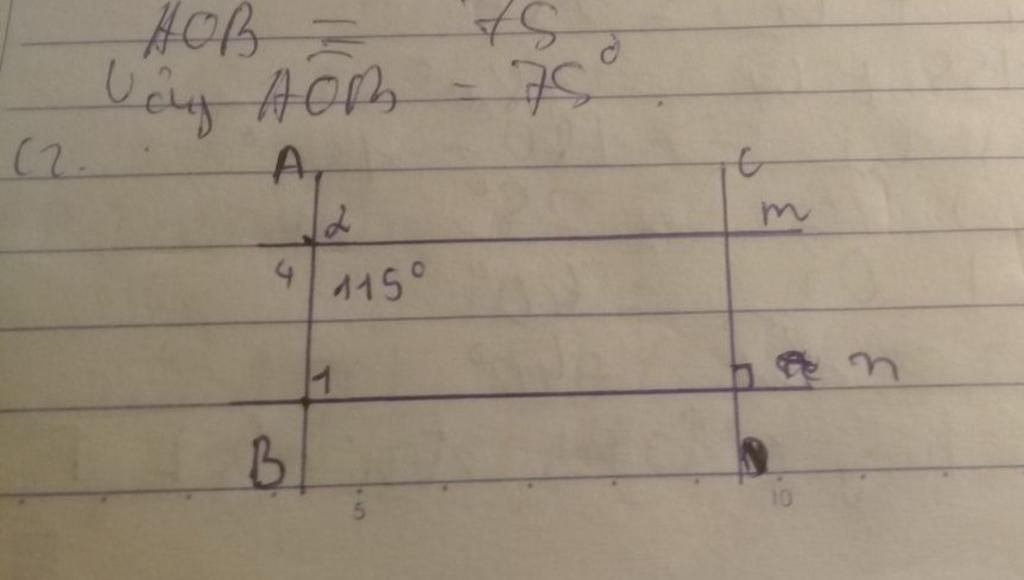 AOB = 75
Vậy AOB = 75°.
C2.
A C
2 m
4 115°
1 n
B D
5 10